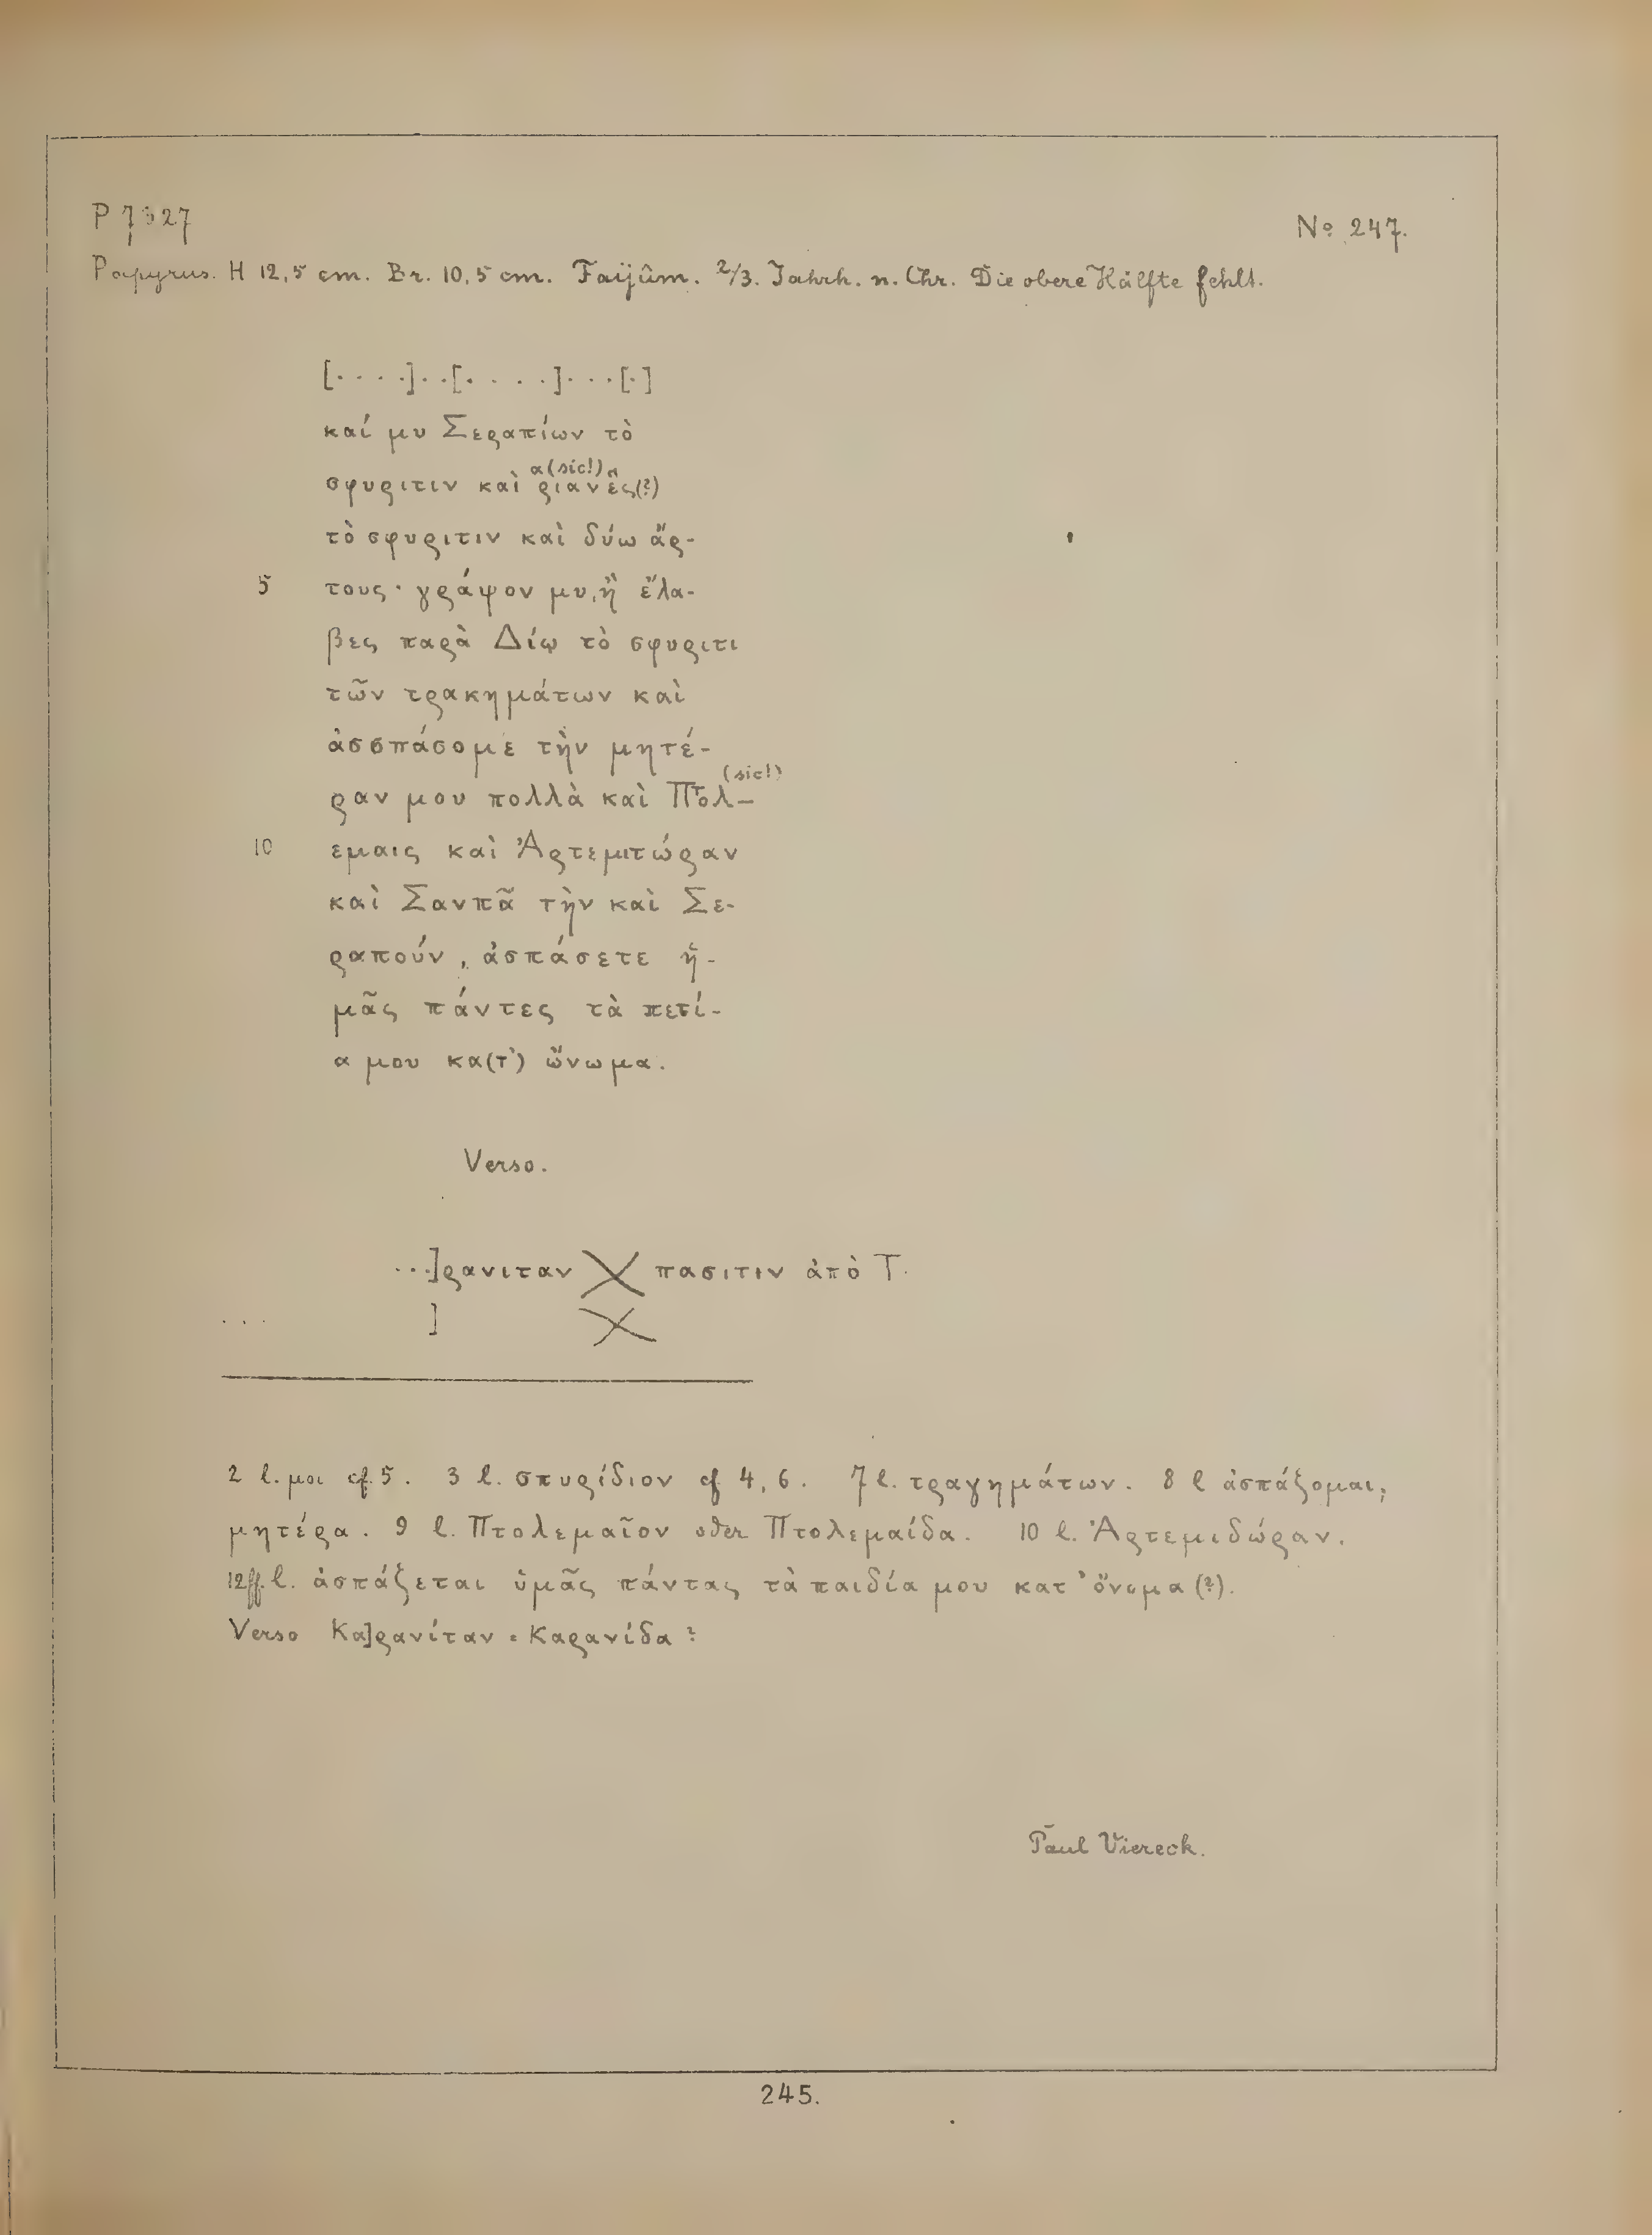 P 7127
No 247.
Papyrus. H 12,5 cm. Br. 10,5 cm. Faijûm. 2/3. Jahrh. n. Chr. Die obere Hälfte fehlt.
[. . . .]. .[. . . . .]. . .[.]
καί μυ Σεραπίων τὸ
α(sic!)
σφυριτιν καὶ ριανε͂ς(?)
τὸ σφυριτιν καὶ δύω ἄρ-
5 τους· γράψον μυ, ἢ ἔλα-
βες παρὰ Δίῳ τὸ σφυριτι
τῶν τρακημάτων καὶ
ἀσσπάσομε τὴν μητέ-
(sic!)
ραν μου πολλὰ καὶ Πτολ-
10 εμαις καὶ Ἀρτεμιτώραν
καὶ Σανπᾶ τὴν καὶ Σε-
ραπούν, ἀσπάσετε ἡ-
μᾶς πάντες τὰ πετί-
α μου κα(τ᾽) ὤνωμα.
Verso.
...]ρανιταν X πασιτιν ἀπὸ Τ.
. . . ] X
2 l. μοι cf. 5. 3 l. σπυρίδιον cf 4, 6. 7 l. τραγημάτων. 8 l ἀσπάζομαι;
μητέρα. 9 l. Πτολεμαῖον oder Πτολεμαίδα. 10 l. Ἀρτεμιδώραν.
12ff. l. ἀσπάζεται ὑμᾶς πάντας τὰ παιδία μου κατ᾽ ὄνομα (?).
Verso Κα]ρανίταν = Καρανίδα?
Paul Viereck.
245.